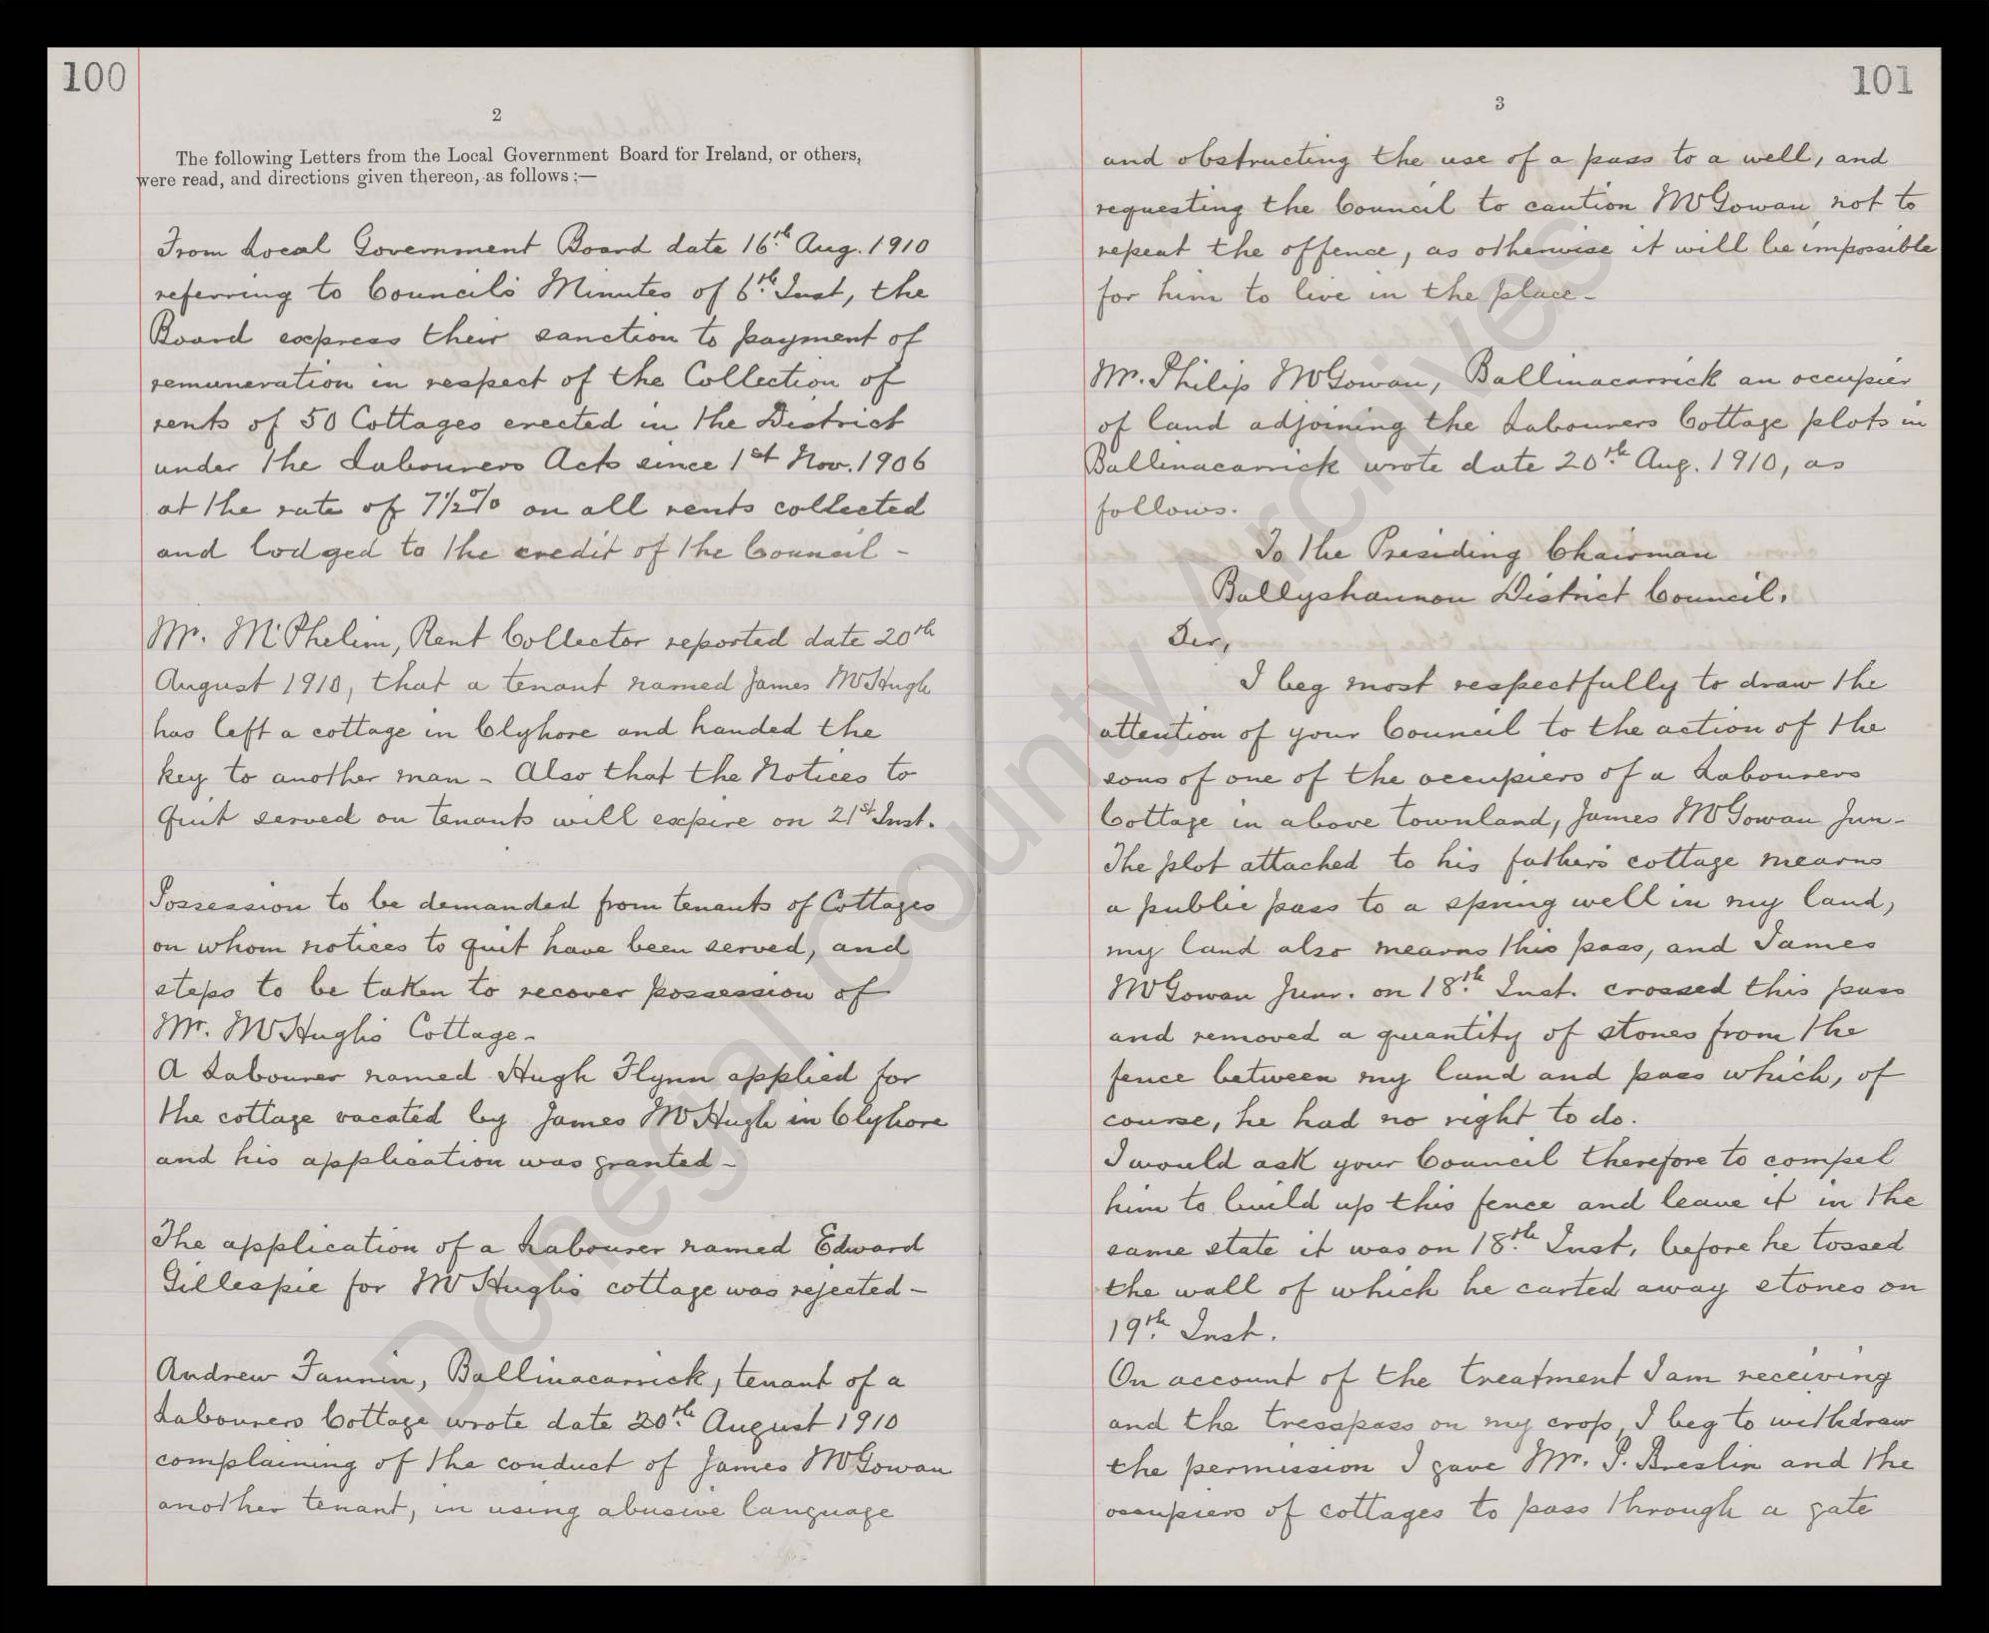 100
2
The following Letters from the Local Government Board for Ireland, or others,
were read, and directions given thereon, as follows :—
From Local Government Board date 16th Aug. 1910
referring to Council's Minutes of 6th Inst, the
Board express their sanction to payment of
remuneration in respect of the Collection of
rents of 50 Cottages erected in the District
under the Labourers Acts since 1st Nov. 1906
at the rate of 7½% on all rents collected
and lodged to the credit of the Council -
Mr. McPhelim, Rent Collector reported date 20th
August 1910, that a tenant named James McHugh
has left a cottage in Clyhore and handed the
key to another man - Also that the Notices to
Quit served on tenants will expire on 21st Inst.
Possession to be demanded from tenants of Cottages
on whom notices to quit have been served, and
steps to be taken to recover possession of
Mr. McHugh's Cottage -
A Labourer named Hugh Flynn applied for
the cottage vacated by James McHugh in Clyhore
and his application was granted -
The application of a Labourer named Edward
Gillespie for McHugh's cottage was rejected -
Andrew Fannin, Ballinacarrick, tenant of a
Labourers Cottage wrote date 20th August 1910
complaining of the conduct of James McGowan
another tenant, in using abusive language
101
3
and obstructing the use of a pass to a well, and
requesting the Council to caution McGowan not to
repeat the offence, as otherwise it will be impossible
for him to live in the place -
Mr. Philip McGowan, Ballinacarrick an occupier
of land adjoining the Labourers Cottage plots in
Ballinacarrick wrote date 20th Aug. 1910, as
follows.
To the Presiding Chairman
Ballyshannon District Council.
Sir,
I beg most respectfully to draw the
attention of your Council to the action of the
sons of one of the occupiers of a Labourers
Cottage in above townland, James McGowan Jun -
The plot attached to his father's cottage mearns
a public pass to a spring well in my land,
my land also mearns this pass, and James
McGowan Junr. on 18th Inst. crossed this pass
and removed a quantity of stones from the
fence between my land and pass which, of
course, he had no right to do.
I would ask your Council therefore to compel
him to build up this fence and leave it in the
same state it was on 18th Inst, before he tossed
the wall of which he carted away stones on
19th Inst.
On account of the treatment I am receiving
and the tresspass on my crop, I beg to withdraw
the permission I gave Mr. P. Breslin and the
occupiers of cottages to pass through a gate
Donegal County Archives